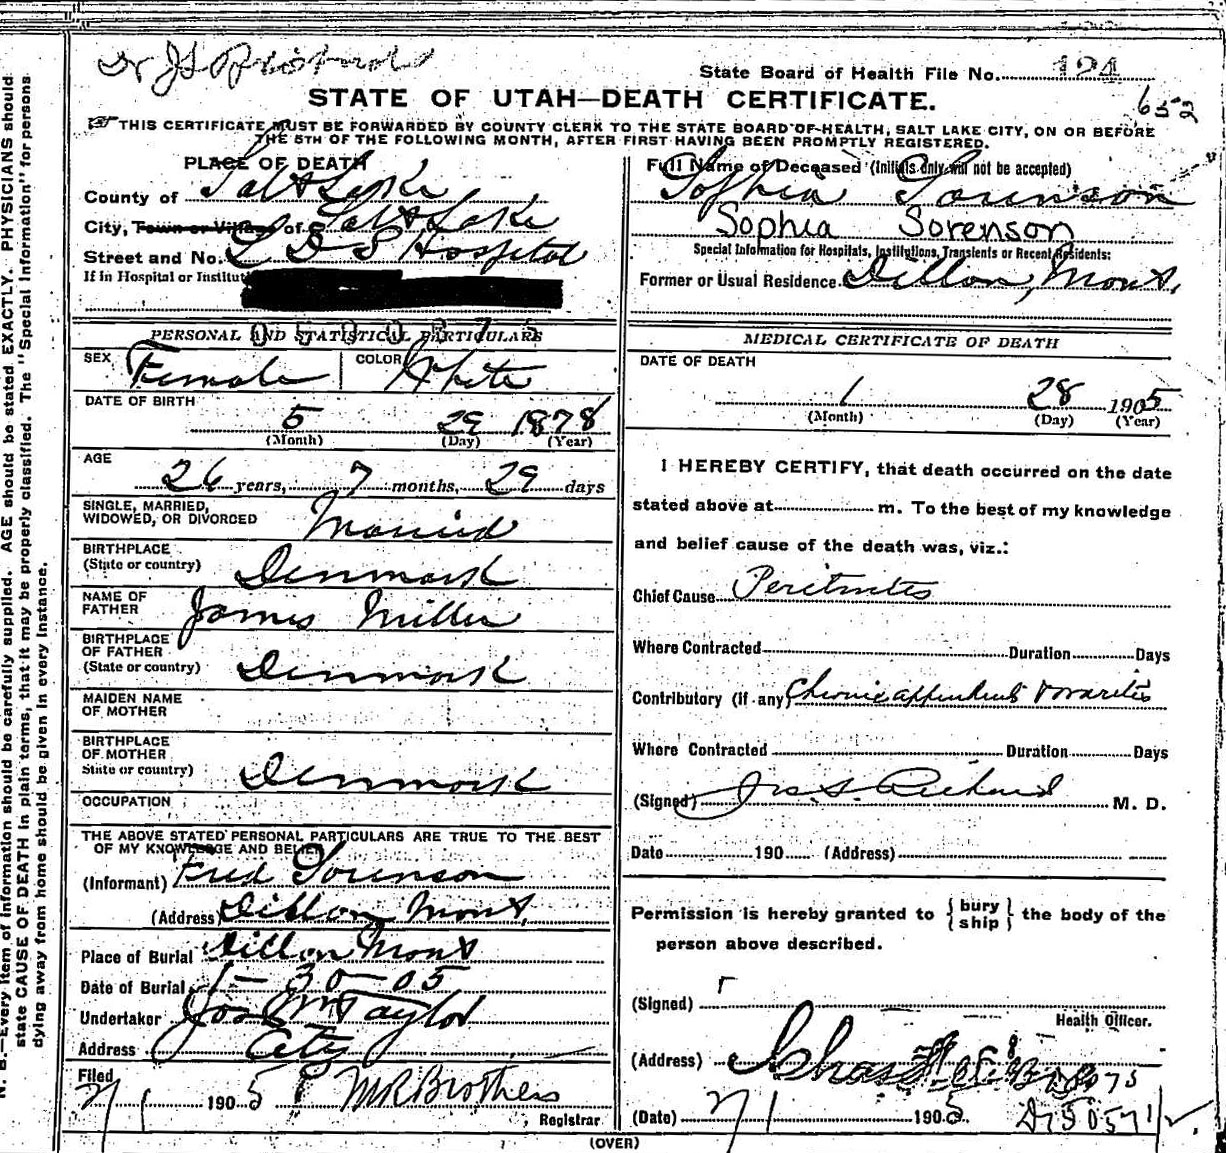 State Board of Health File No. 124
652
STATE OF UTAH—DEATH CERTIFICATE.
THIS CERTIFICATE MUST BE FORWARDED BY COUNTY CLERK TO THE STATE BOARD OF HEALTH, SALT LAKE CITY, ON OR BEFORE
THE 5TH OF THE FOLLOWING MONTH, AFTER FIRST HAVING BEEN PROMPTLY REGISTERED.
PLACE OF DEATH
County of Salt Lake
City, Town or Village of Salt Lake
Street and No. L D S Hospital
If in Hospital or Institut
Full Name of Deceased (Initials only will not be accepted)
Sophia Sorenson
Sophia Sorenson
Special Information for Hospitals, Institutions, Transients or Recent Residents:
Former or Usual Residence. Dillon, Mont.
PERSONAL AND STATISTICAL PARTICULARS
SEX Female COLOR White
DATE OF BIRTH
5 29 1878
(Month) (Day) (Year)
AGE
26 years, 7 months, 29 days
SINGLE, MARRIED,
WIDOWED, OR DIVORCED Married
BIRTHPLACE
(State or country) Denmark
NAME OF
FATHER James Miller
BIRTHPLACE
OF FATHER
(State or country) Denmark
MAIDEN NAME
OF MOTHER
BIRTHPLACE
OF MOTHER
State or country) Denmark
OCCUPATION
THE ABOVE STATED PERSONAL PARTICULARS ARE TRUE TO THE BEST
OF MY KNOWLEDGE AND BELIEF
(Informant) Fred Sorenson
(Address) Dillon Mont.
Place of Burial Dillon Mont
Date of Burial 1-30-05
Undertaker Jos Wm Taylor
Address City
Filed 2/1 1905 M R Brothers
Registrar
MEDICAL CERTIFICATE OF DEATH
DATE OF DEATH
1 28 1905
(Month) (Day) (Year)
I HEREBY CERTIFY, that death occurred on the date
stated above at m. To the best of my knowledge
and belief cause of the death was, viz.:
Chief Cause Peritinites
Where Contracted Duration Days
Contributory (if any) Chronic appendicits & ovarites
Where Contracted Duration Days
(Signed) M. D.
Date 190 (Address)
Permission is hereby granted to { bury ship } the body of the
person above described.
(Signed)
Health Officer.
(Address)
(Date) 2/1 1905
(OVER)
N. B.—Every item of information should be carefully supplied. AGE should be stated EXACTLY. PHYSICIANS should
state CAUSE OF DEATH in plain terms, that it may be properly classified. The "Special Information" for persons
dying away from home should be given in every instance.